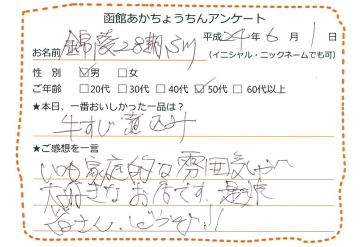 函館あかちょうちんアンケート
平成24年6月1日
お名前 錦陵28期
(イニシャル・ニックネームでも可)
性 別 ☑男 □女
ご年齢 □20代 □30代 □40代 ☑50代 □60代以上
★本日、一番おいしかった一品は?
牛すじ煮込み
★ご感想を一言
いつも家庭的な雰囲気で
大好きなお店です。
皆さん、どうぞ!!